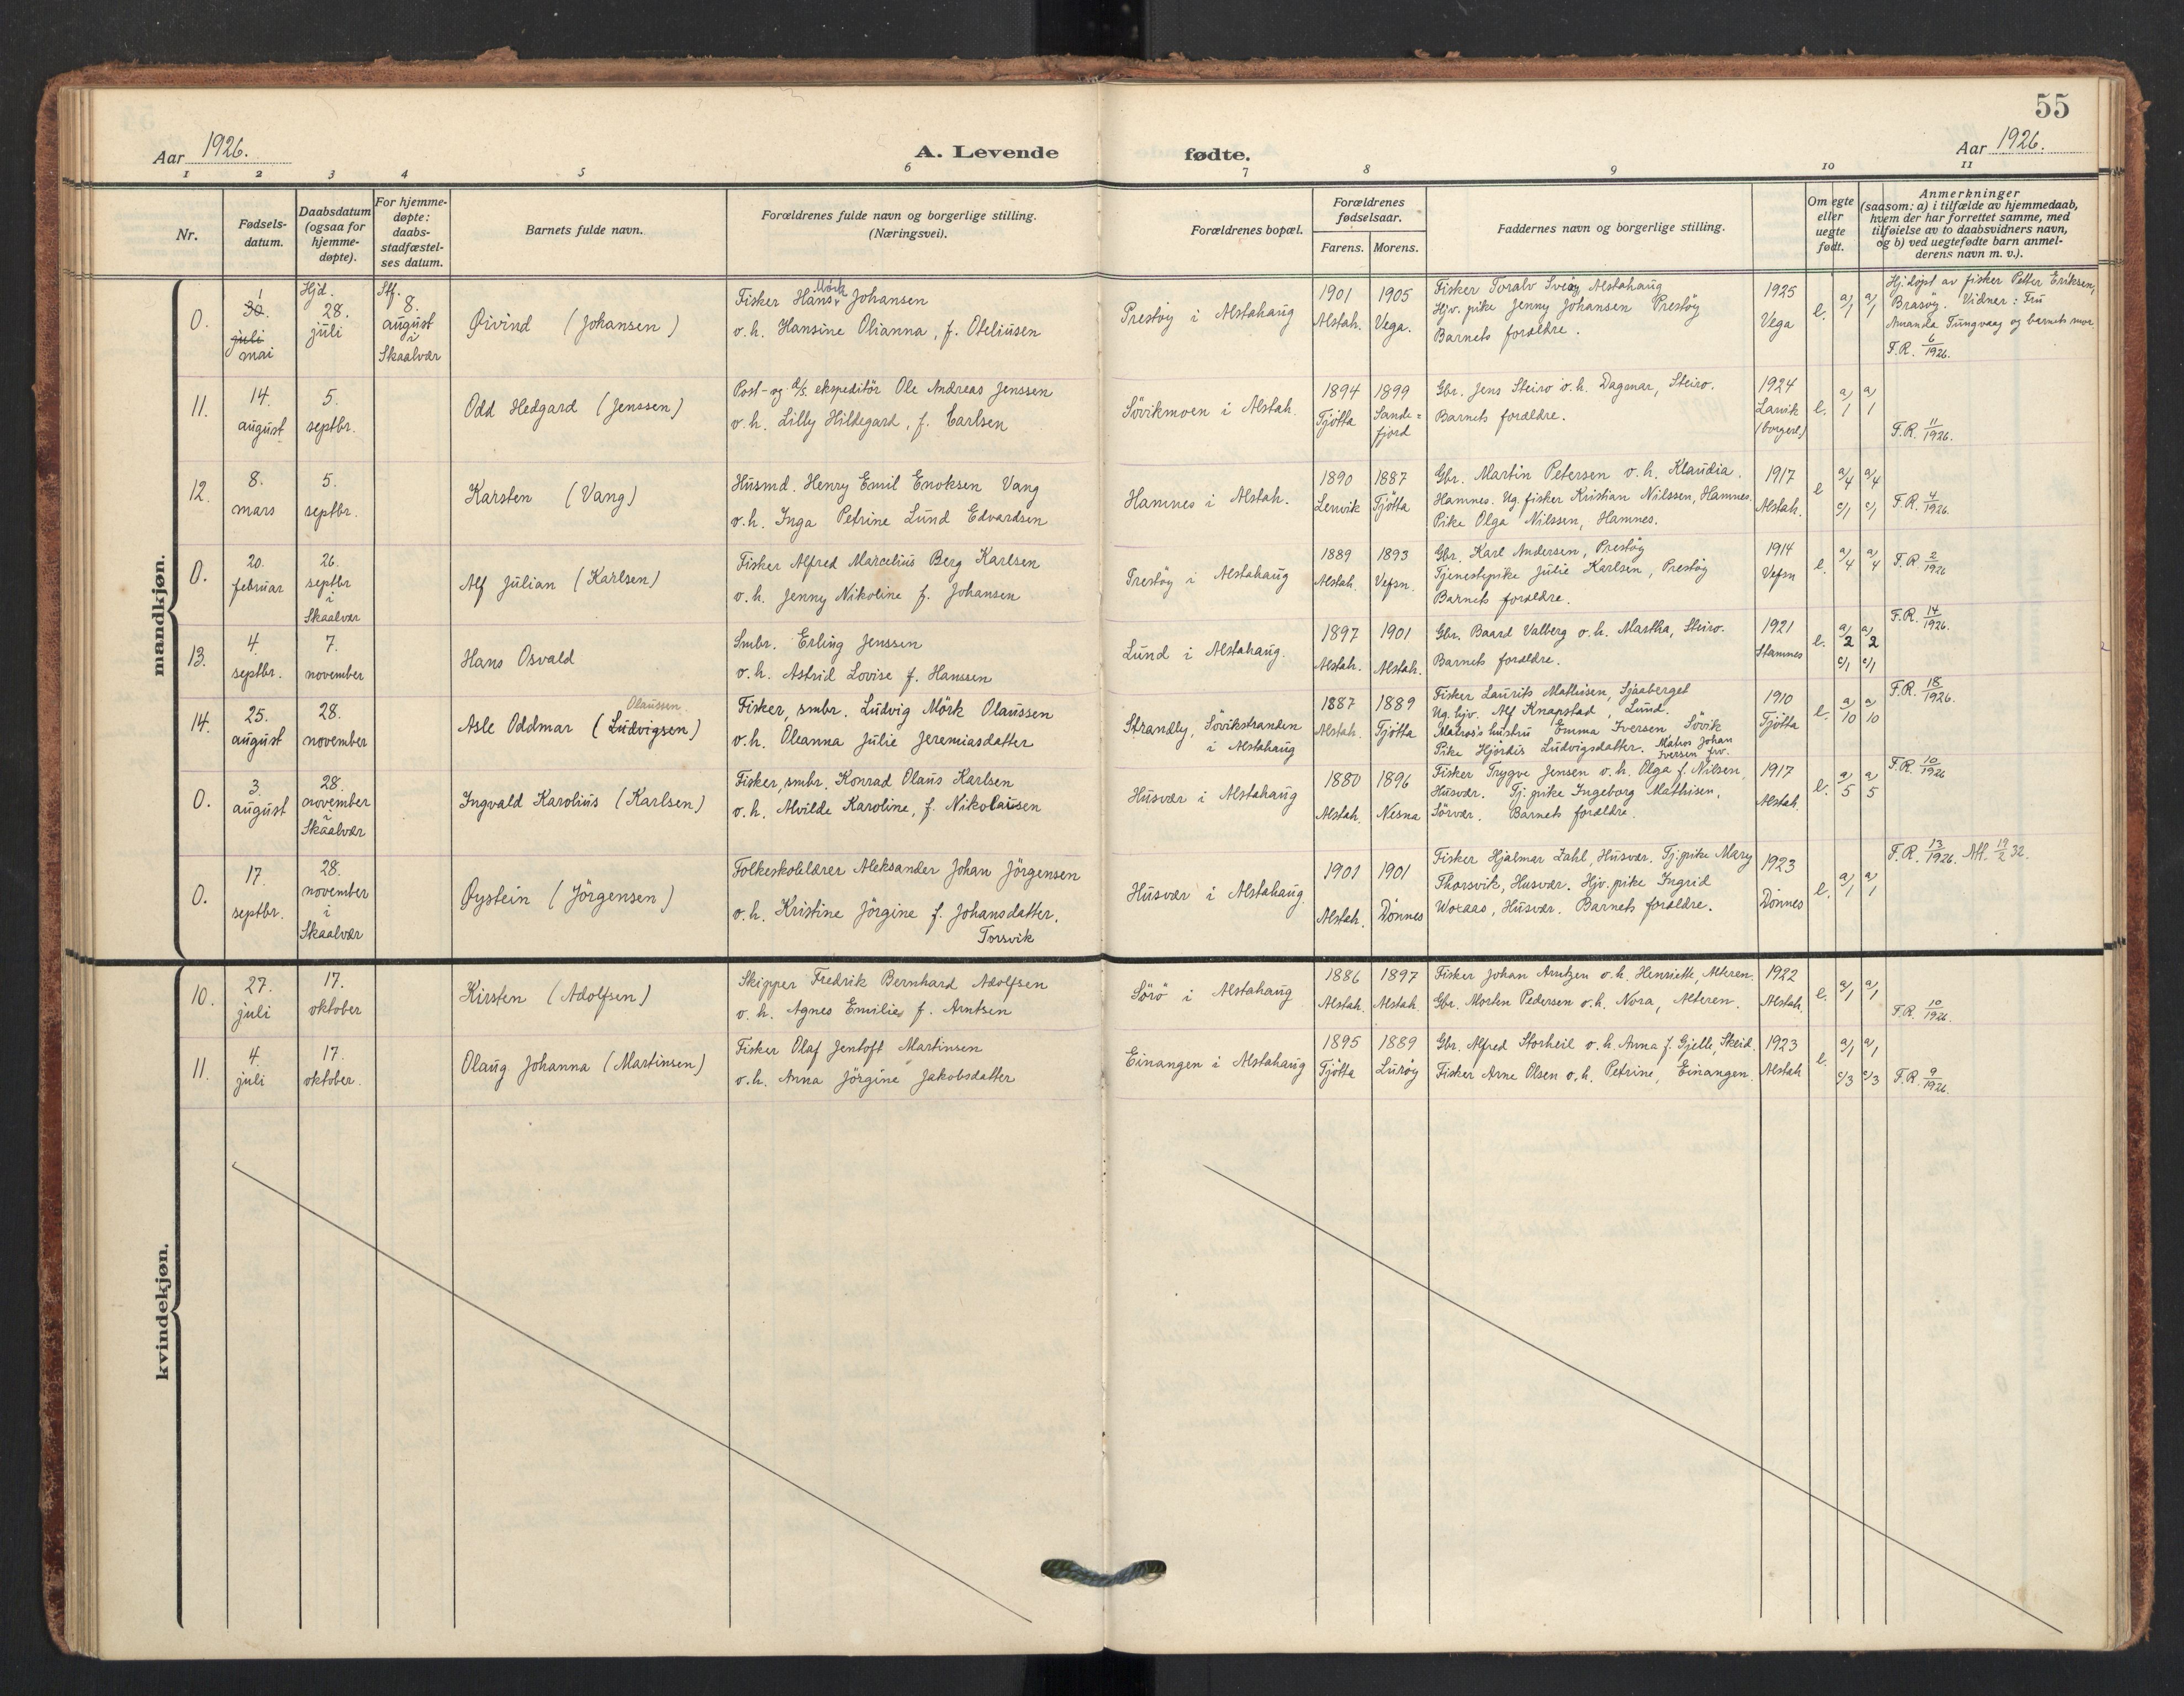 55
Aar 1926.
A. Levende fødte.
Aar 1926.
1 2 3 4 5 6 7 8 9 10 11
Nr.
Fødsels-
datum.
Daabsdatum
(ogsaa for
hjemme-
døpte).
For hjemme-
døpte:
daabs-
stadfæstel-
ses datum.
Barnets fulde navn.
Forældrenes fulde navn og borgerlige stilling.
(Næringsvei).
Forældrenes bopæl.
Forældrenes
fødselsaar.
Farens. Morens.
Faddernes navn og borgerlige stilling.
Om egte
eller
uegte
født.
Anmerkninger
(saasom: a) i tilfælde av hjemmedaab,
hvem der har forrettet samme, med
tilføielse av to daabsvidners navn,
og b) ved uegtefødte barn anmel-
derens navn m. v.).
mandkjøn.
0.
1
30.
juli
mai
Hjd.
28.
juli
Stf.
8.
august
i
Skaalvær
Øivind (Johansen)
Mörk
Fisker Hans Johansen
o. h. Hansine Olianna, f. Oteliusen
Prestöy i Alstahaug
1901 1905
Alstah. Vega.
Fisker Toralv Alstahaug
Hjv. pike Jenny Johansen Prestöy
Barnets forældre.
1925
Vega
e.
a/1 a/1
Hj.döpt av fisker Petter Eriksen,
Brasöy. Vidner: Fru
Amanda Tungvaag og barnets mor.
F.R. 6/1926.
11.
14.
august
5.
septbr.
Odd Hedgard (Jenssen)
Post- og d/s. ekspeditör Ole Andreas Jenssen
o. h. Lilly Hildegard, f. Carlsen
Sövikmoen i Alstah.
1894 1899
Tjötta Sande=
fjord
Gbr. Jens Steiro o. h. Dagmar, Steiro.
Barnets forældre.
1924
Larvik
(borgerl.)
e.
a/1 a/1
F.R. 11/1926.
12.
8.
mars
5.
septbr.
Karsten (Vang)
Husmd. Henry Emil Enoksen Vang
o. h. Inga Petrine Lund Edvardsen
Hamnes i Alstah.
1890 1887
Lenvik Tjötta
Gbr. Martin Petersen o. h. Klaudia.
Hamnes. Ug. fisker Kristian Nilssen, Hamnes.
Pike Olga Nilssen, Hamnes.
1917
Alstah.
e
a/4 a/4
c/1 c/1
F.R. 4/1926.
0.
20.
februar
26.
septbr
i
Skaalvær
Alf Julian (Karlsen)
Fisker Alfred Marcelius Berg Karlsen
o. h. Jenny Nikoline f. Johansen
Prestöy i Alstahaug
1889 1893
Alstah. Vefsn.
Gbr. Karl Andersen, Prestöy
Tjenestepike Julie Karlsen, Prestöy
Barnets forældre.
1914
Vefsn
e.
a/4 a/4
F.R. 2/1926
13.
4.
septbr.
7.
november
Hans Osvald
Smbr. Erling Jenssen
o. h. Astrid Lovise f. Hanssen
Lund i Alstahaug.
1897 1901
Alstah. Alstah.
Gbr. Baard Valberg o. h. Martha, Steiro.
Barnets forældre.
1921
Stamnes
e.
a/2 a/2
c/1 c/1
F.R. 14/1926.
14.
25.
august
28.
november
Olaussen.
Asle Oddmar (Ludvigsen)
Fisker, smbr. Ludvig Mörk Olaussen
o. h. Oleanna Julie Jeremiasdatter
Strandly, Sövikstranden
i Alstahaug
1887 1889
Alstah. Tjötta
Fisker Laurits Mathisen, Sjaaberget
Ug. hjv. Alf Knapstad, Lund.
Matros's hustru Emma Iversen Sövik
Pike Hjördis Ludvigsdatter. Matros Johan
Iversen
1910
Tjötta
e.
a/10 a/10
F.R. 18/1926.
0.
3.
august
28.
november
i
Skaalvær
Ingvald Karolius (Karlsen)
Fisker, smbr. Konrad Olaus Karlsen
o. h. Alvilde Karoline, f. Nikolaisen
Husvær i Alstahaug
1880 1896
Alstah. Nesna
Fisker Trygve Jensen o. h. Olga f. Nilsen,
Husvær. Tj. pike Ingeborg Mathisen,
Sörvær. Barnets forældre.
1917
Alstah.
e.
a/5 a/5
F.R. 10/1926
0.
17.
septbr.
28.
november
i
Skaalvær
Øystein (Jörgensen)
Folkeskolelærer Aleksander Johan Jörgensen
o. h. Kristine Jörgine f. Johansdatter,
Torsvik
Husvær i Alstahaug
1901 1901
Alstah. Dönnes
Fisker Hjalmar Zahl, Husvær. Tj. pike Mary
Thorsvik, Husvær. Hjv. pike Ingrid
Woxaas, Husvær. Barnets forældre.
1923
Dönnes
e.
a/1 a/1
F.R. 13/1926. Att. 19/2 32.
kvindekjøn.
10.
27.
juli
17.
oktober
Kirsten (Adolfsen)
Skipper Fredrik Bernhard Adolfsen
o. h. Agnes Emilie f. Arntsen
Sörö i Alstahaug
1886 1897
Alstah. Alstah.
Fisker Johan Arntzen o. h. Henriette, Alteren.
Gbr. Morten Pedersen o. h. Nora, Alteren.
1922
Alstah.
e.
a/1 a/1
F.R. 10/1926.
11.
4.
juli
17.
oktober.
Olaug Johanna (Martinsen)
Fisker Olaf Jentoft Martinsen
o. h. Anna Jörgine Jakobsdatter
Einangen i Alstahaug
1895 1889
Tjötta Luröy
Gbr. Alfred Storheil o. h. Anna f. Gjelle, Skeid.
Fisker Arne Olsen o. h. Petrine, Einangen.
1923
Alstah
e.
a/1 a/1
c/3 c/3
F.R. 9/1926.